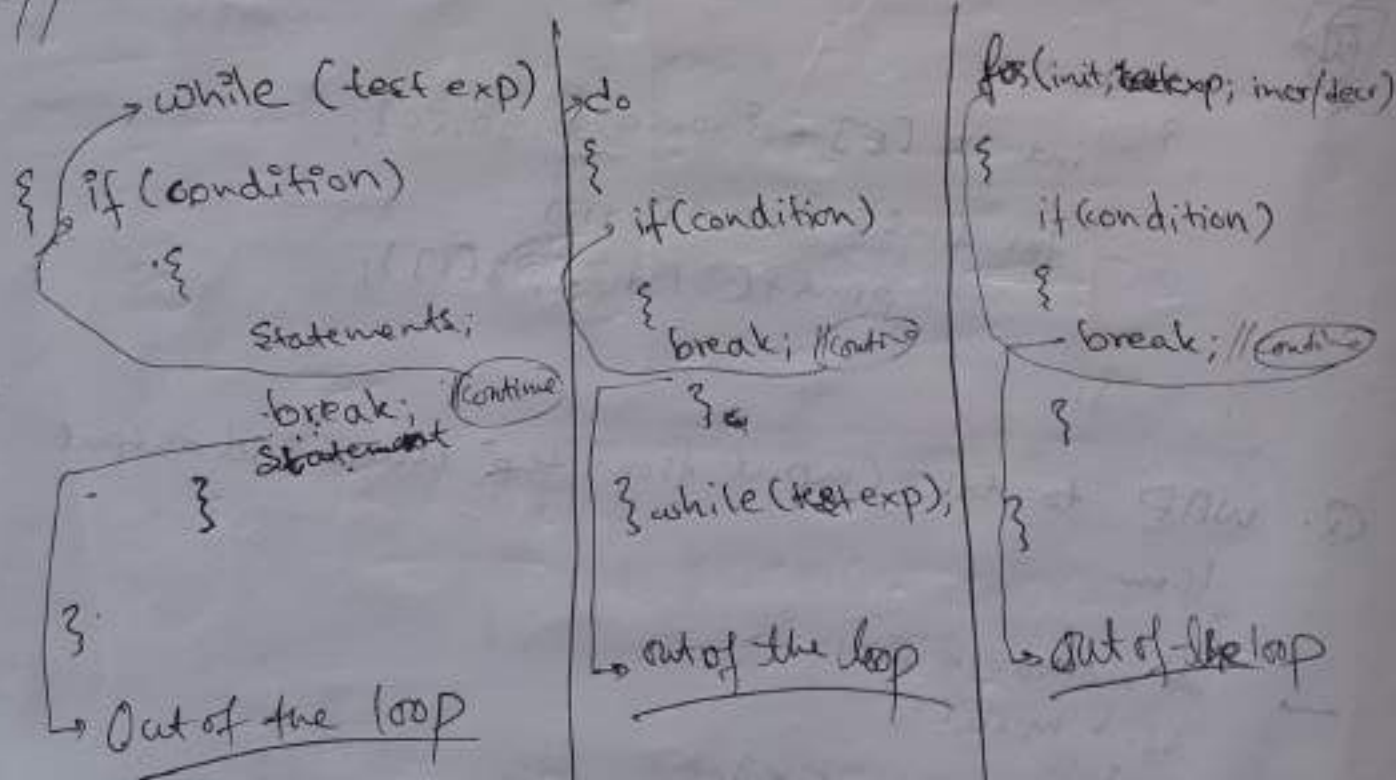 //
while (test exp)
{ if (condition)
{
Statements;
break; //continue
Statement
}
}
Out of the loop
do
{
if (condition)
{
break; //Contin
}
} while (test exp);
out of the loop
for (init; test exp; incr/decr)
{
if (condition)
{
break; //Contin
}
}
Out of the loop